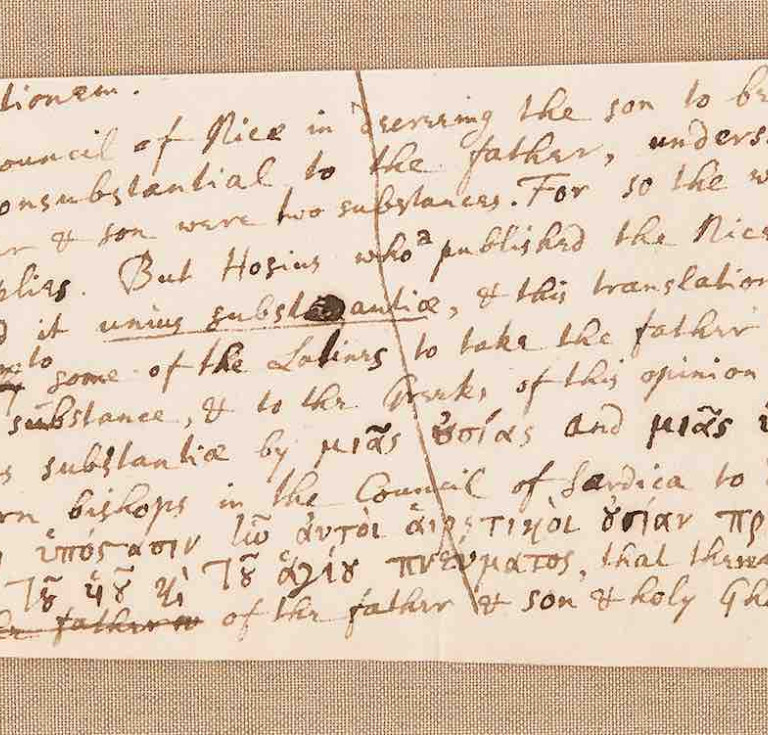 tionem.
ouncil of Nice in decreeing the son to be
onsubstantial to the father, unders
er & son were two substances. For so the w
plies. But Hosius who published the Nice
d it unius substantiæ, & this translation
to some of the Latines to take the father
substance, & to the Greeks of this opinion
s substantiæ by μιᾶς ȣ̓σίας and μιᾶς
rn bishops in the Council of Sardica to
ὑπόστασιν ἣν ἀυτὸι ἁιρετικὸι ȣ̓σίαν πρ
τȣ͂ ὑȣ͂ ϗὶ τȣ͂ ἁγίȣ πνέυματος, that there
he father of the father & son & holy Gho